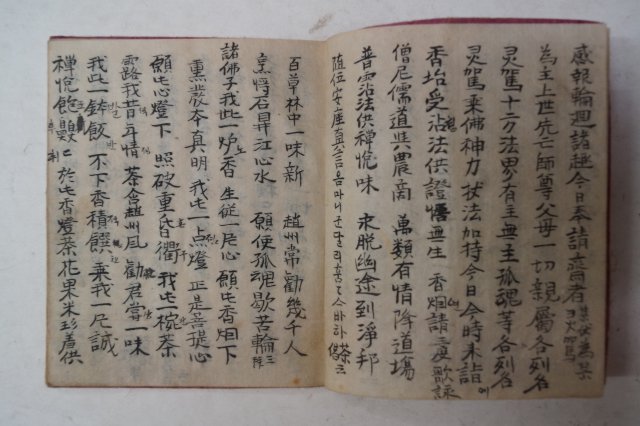 感報輪廻諸趣今日奉請齋者某伏爲某
為主上世先亡師尊父母一切親屬各列名
灵駕十方法界有主無主孤魂等各列名
灵駕乘佛神力仗法加持今日今時來詣
香坮受沾法供證悟無生 香烟請三度歌詠
僧尼儒道與農商 萬類有情降道場
普霑法供禪悅味 永脫幽途到淨邦
隨位安座真言 옴마니군다리훔훔스바하 茶偈云
百草林中一味新 趙州常勸幾千人
烹將石鼎江心水 願使孤魂歇苦輪
諸佛子我此一炉香 生從一片心 願此香烟下
熏發本真明 我此一点燈 正是菩提心
願此心燈下 照破重昏衢 我此椀茶
露我昔年情 茶含趙州风 勸君嘗一味
我此一鉢飯 不下香積饌 乘我一片誠
禪悅飽 於此香燈茶花果米珍羞供